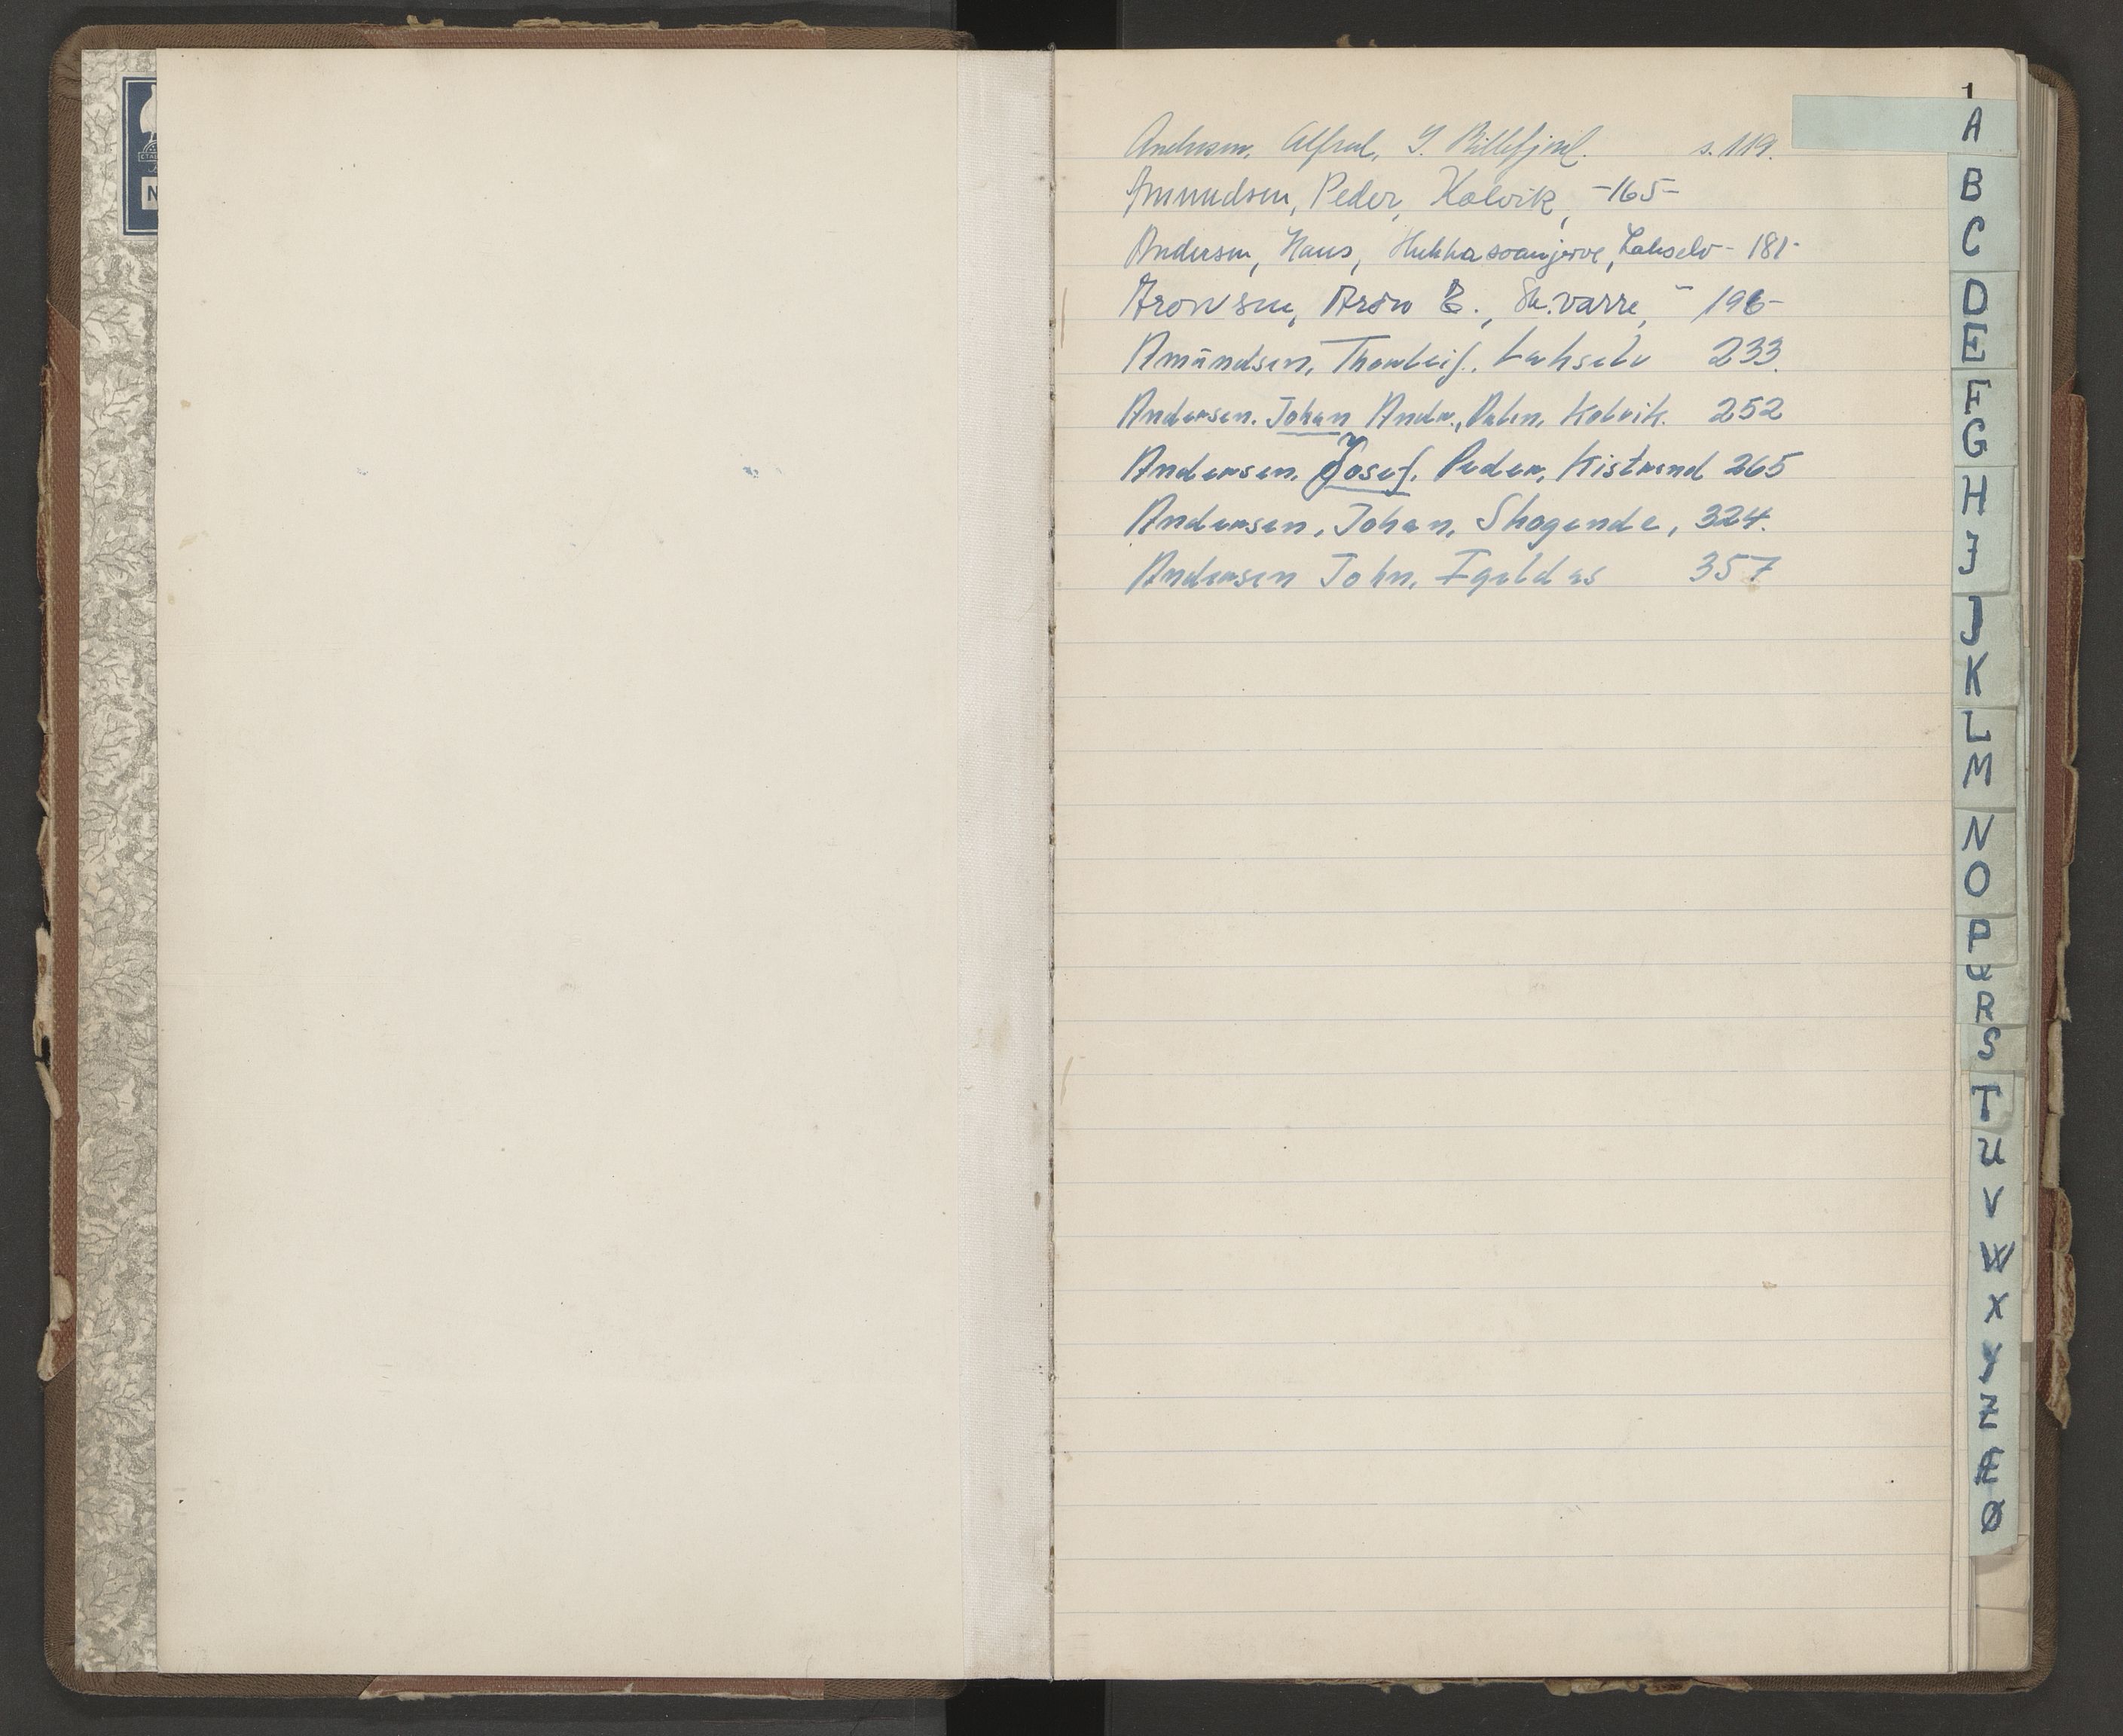 1
Andersen, Alfred, Y. Billefjord. s. 119.
Amundsen, Peder, Kolvik, -165-
Andersen, Hans, Lakselv - 181-
Aronsen, Aron E., Sk.varre, - 196-
Amundsen, Thorleif, Lakselv 233.
Andersen, Johan Andr., Kolvik. 252
Andersen, Josef, Peder, Kistrand 265
Andersen, Johan, Skogende, 324.
Andersen John, Igeldas 357
A
B
C
D
E
F
G
H
I
J
K
L
M
N
O
P
Q
R
S
T
U
V
W
X
Y
Z
Æ
Ø
N